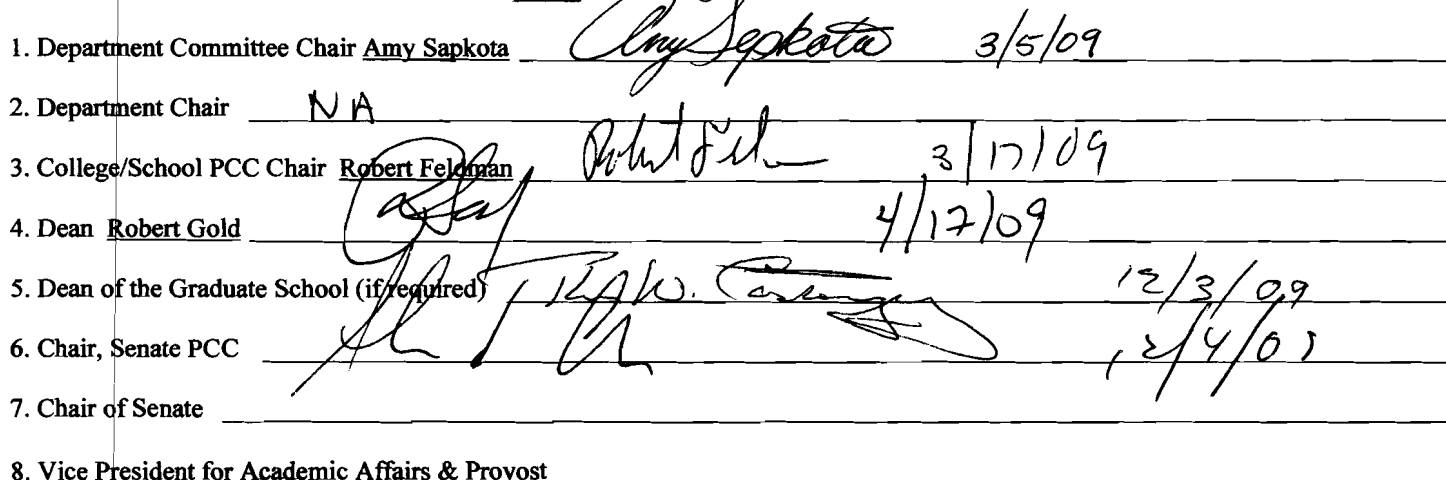 1. Department Committee Chair Amy Sapkota Amy Sapkota 3/5/09
2. Department Chair NA
3. College/School PCC Chair Robert Feldman 3/17/09
4. Dean Robert Gold 4/17/09
5. Dean of the Graduate School (if required) 12/3/09
6. Chair, Senate PCC 12/4/09
7. Chair of Senate
8. Vice President for Academic Affairs & Provost